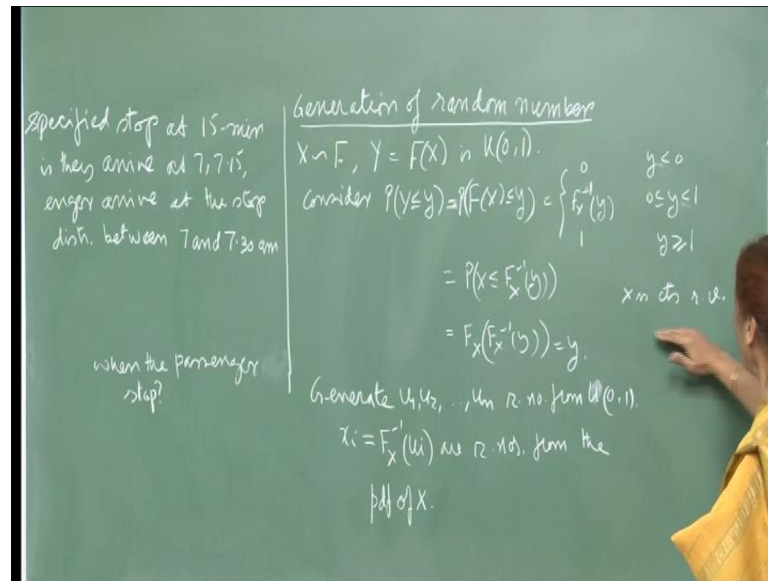 specified stop at 15-min
is they arrive at 7, 7.15,
enger arrive at the stop
distn. between 7 and 7.30 am
when the passenger
stop?
Generation of random number
X ~ F, Y = F(X) is U(0,1).
Consider P(Y ≤ y) = P(F(X) ≤ y) = { 0 y < 0
F_X^{-1}(y) 0 ≤ y < 1
1 y ≥ 1
= P(X ≤ F_X^{-1}(y))
X is cts r.v.
= F_X(F_X^{-1}(y)) = y.
Generate u_1, u_2, ..., u_n r. no. from U(0,1).
x_i = F_X^{-1}(u_i) are r. nos. from the
pdf of X.